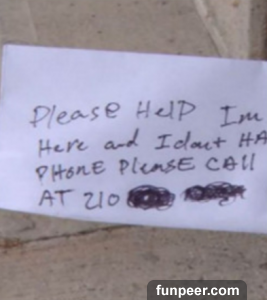 Please HelP Im
Here and I dont HA
PHONE PleASE CAll
AT 210
funpeer.com